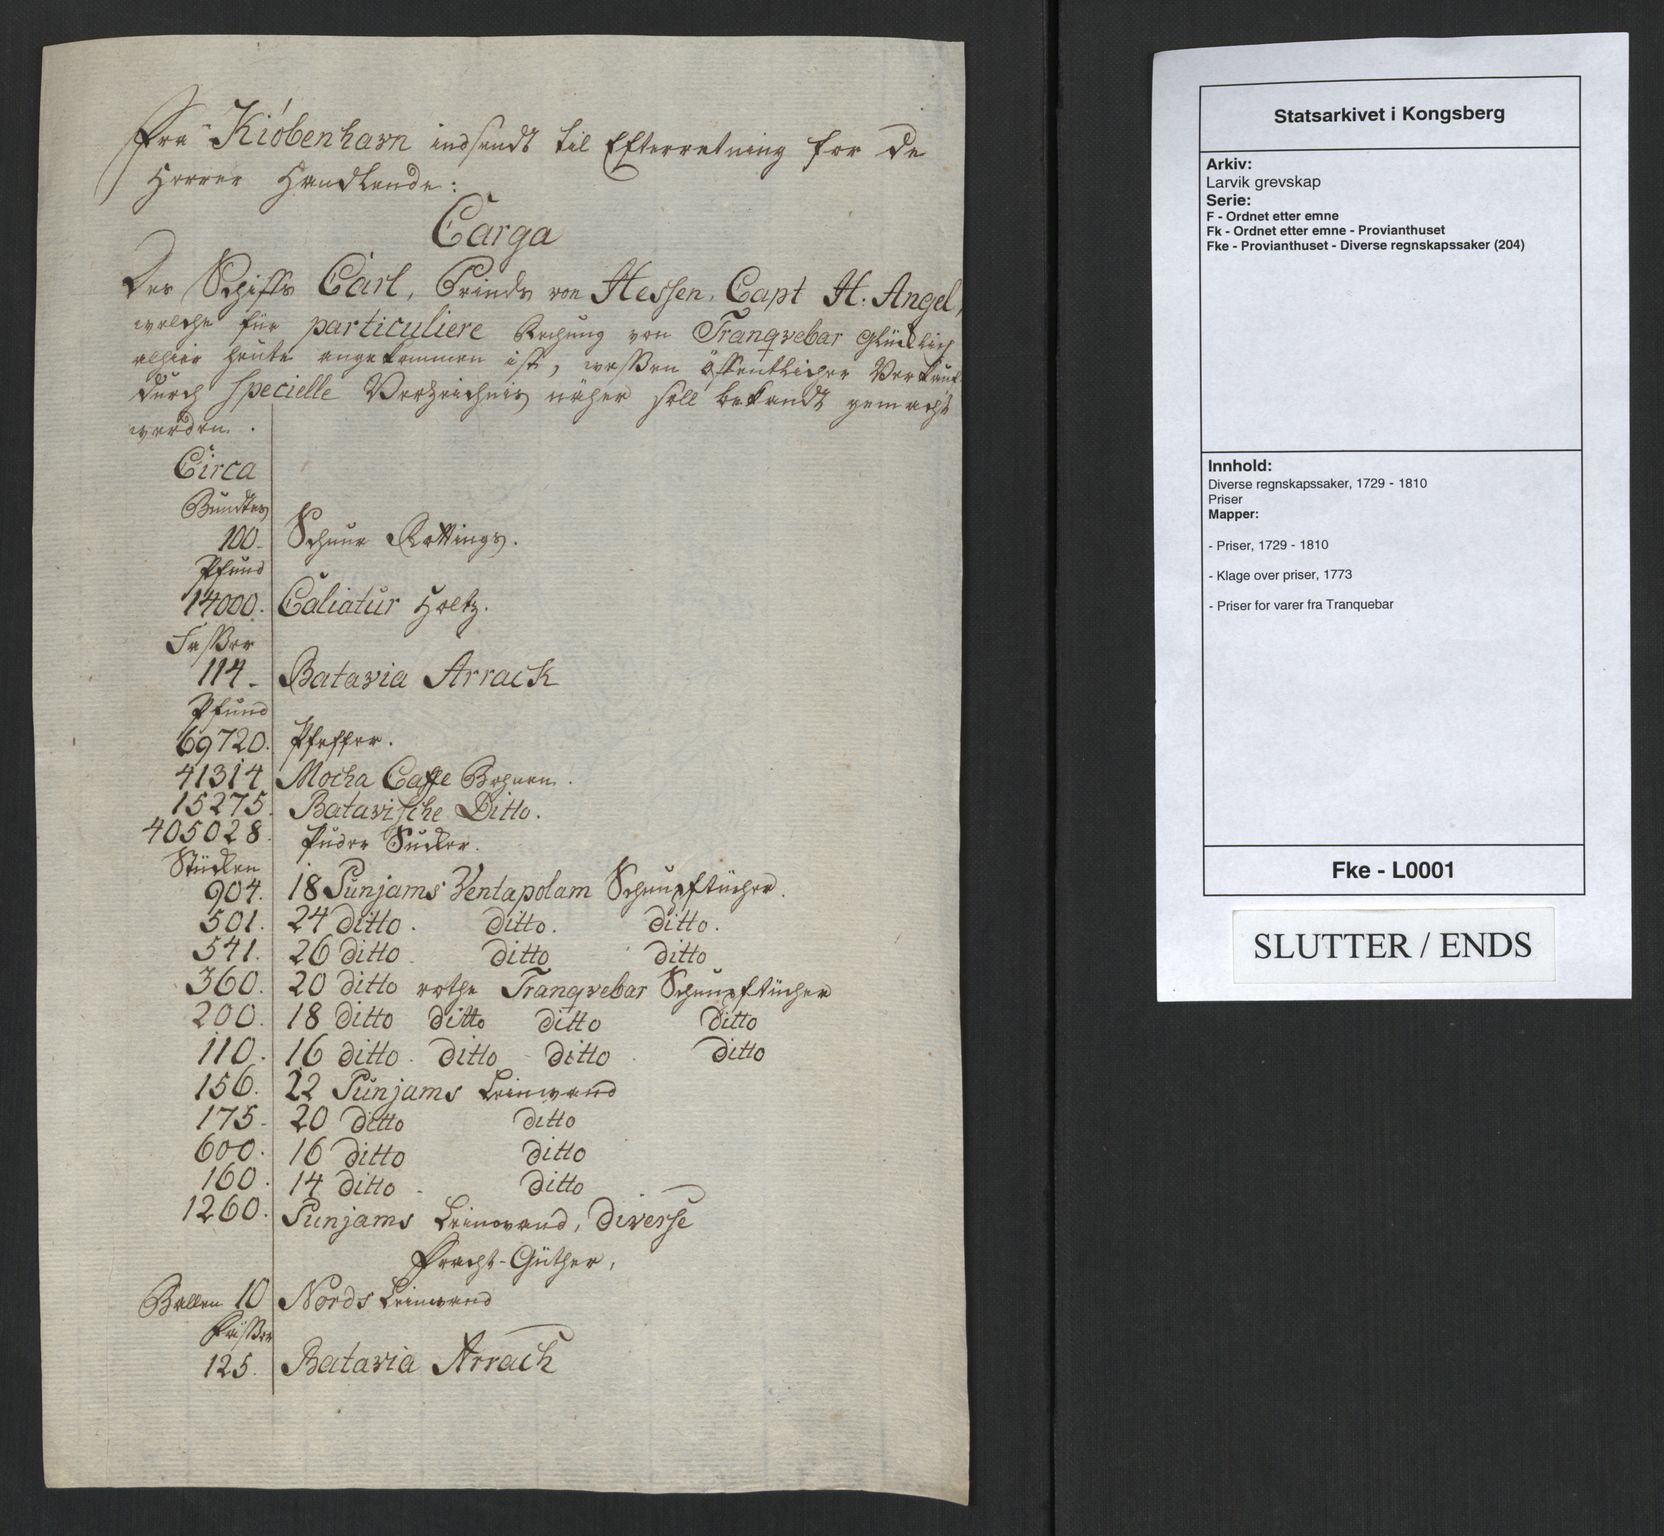 Fra Kiøbenhavn indsendt til Efterretning for de
Herrer Handlende:
Carga
Des Schiffs Carl, Prinds von Hessen, Capt H. Angel,
welche für particuliere Rechung von Tranqvebar glücklich
alhier heute angekommen ist, weßen öffentlicher Verkauf
durch specielle Verzeichnis näher soll bekandt gemacht
werden.
Circa
Bundtes
100. Schnur Rottings.
Pfund
14000. Caliatur Holtz.
Faßer
114. Batavia Arrack
Pfund
69720. Pfeffer.
41314 Mocha Caffe Bohnen.
15275. Batavische Ditto.
405028. Puder Zucker.
Stücken
904. 18 Punjams Ventapolam Schnupftücher.
501. 24 ditto. ditto. ditto.
541. 26 ditto. ditto ditto
360. 20 ditto rothe Tranqvebar Schnupftücher
200. 18 ditto ditto ditto ditto
110. 16 ditto. ditto ditto. ditto
156. 22 Punjams Leinwand
175. 20 ditto ditto
600. 16 ditto ditto
160. 14 ditto. ditto
1260. Punjams Leinwand, Diverse
Fracht-Güther,
Ballen 10 Nords Leinwand
Fäßer
125. Batavia Arrack
Statsarkivet i Kongsberg
Arkiv:
Larvik grevskap
Serie:
F - Ordnet etter emne
Fk - Ordnet etter emne - Provianthuset
Fke - Provianthuset - Diverse regnskapssaker (204)
Innhold:
Diverse regnskapssaker, 1729 - 1810
Priser
Mapper:
- Priser, 1729 - 1810
- Klage over priser, 1773
- Priser for varer fra Tranquebar
Fke - L0001
SLUTTER / ENDS